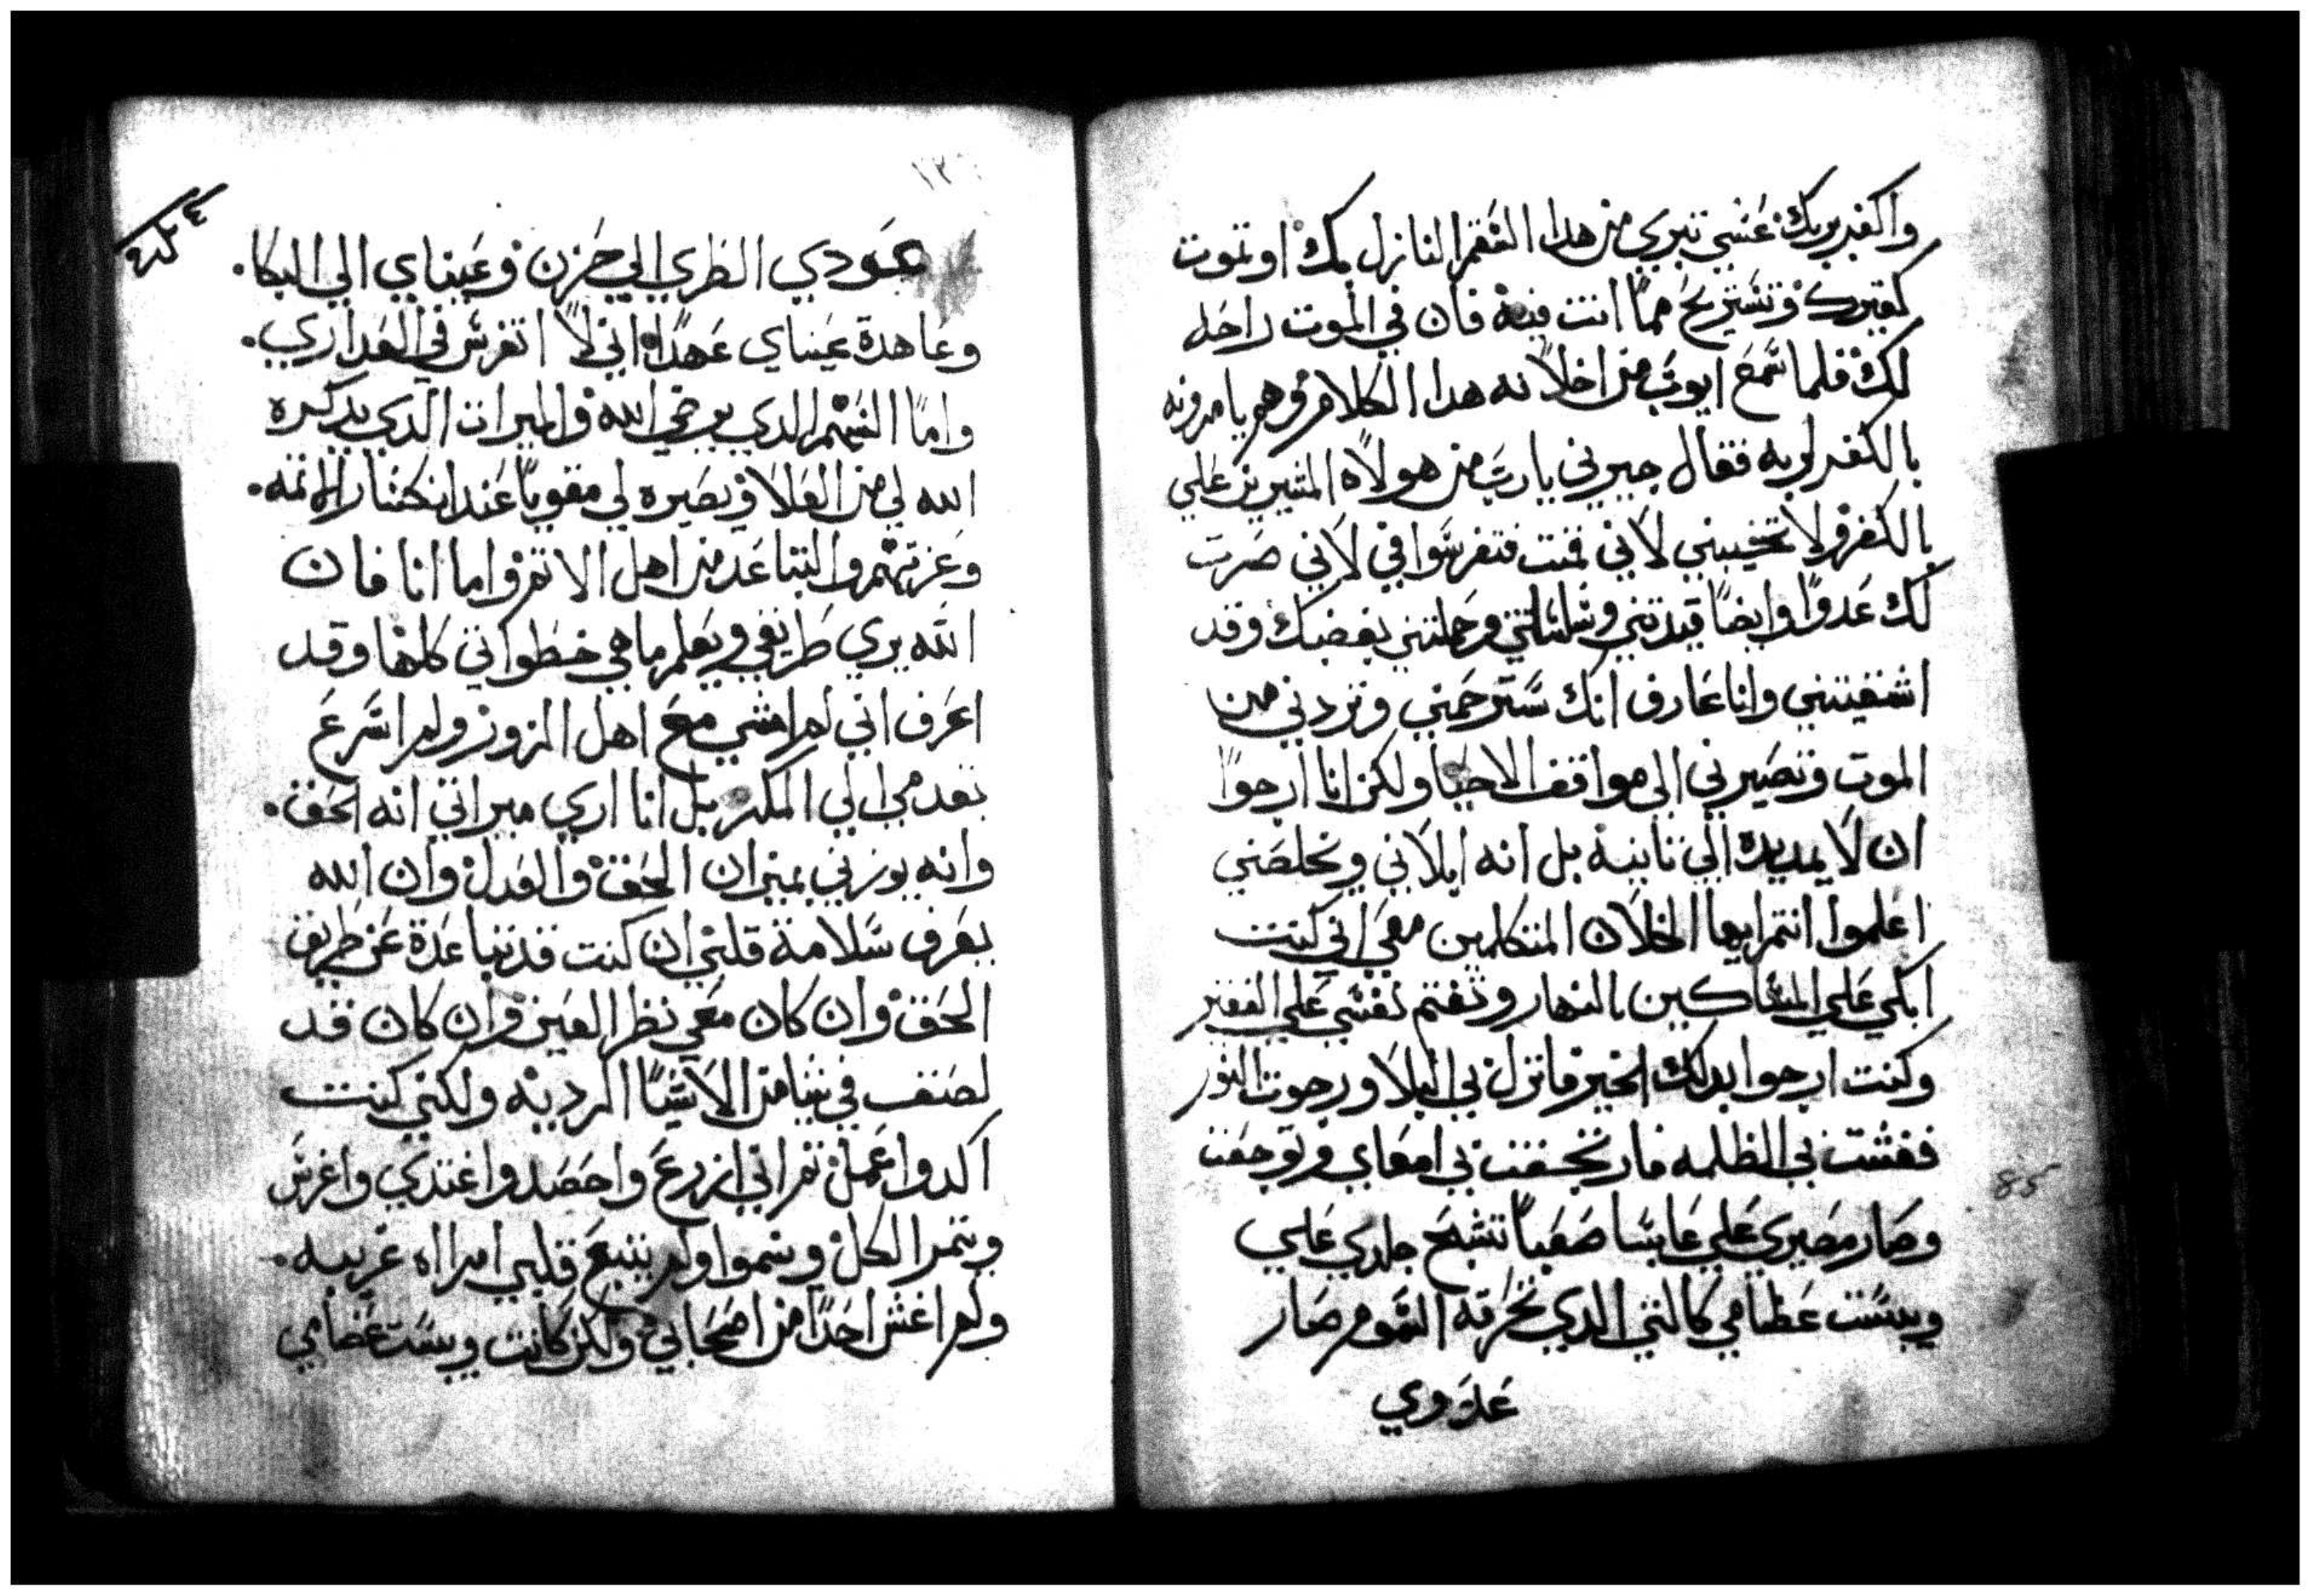 واكفر بربك عسي تبري من هدا السقم النازل بك او تموت
كفيرك وتستريح مما انت فيه فان في الموت راحه
لك فلما سمع ايوب من اخلانه هدا الكلام وهم يامرونه
بالكفر لربه فقال جيرني يارب من هولاه المشيرين علي
بالكفر ولا تخيبني لاني قمت فتفرسوا في لاني صرت
لك عدوًا وايضًا قيدتني وسلسلتني وحملتني بغضبك وقد
اشقيتني وانا عارف انك سترحمني وتردني من
الموت وتصيرني الي مواقف الاحيا ولكن انا ارجوا
ان لا يمد يده الي تانية بل انه ابلاني ويخلصني
اعلموا انتم ايها الخلان المتكلمين معي اني كنت
ابكي علي المساكين بالنهار وتغتم نفسي علي الفقير
وكنت ارجوا بدلك الخير فانزل بي البلا ورجوت النور
فغشت بي الظلمه فارتجفت بي امعاي وتوجعت
وصار مصيري علي عابسا صعبا تشبح جلدي علي
ويبست عظامي كالشي الدي تحرقه السموم صار
عدوي
١٢
عودي الطري الي حزن وعيناي الي البكا.
وعاهدة عيناي عهدًا اني لا اتفرس في العداري.
واما السهم الدي يرضي الله والميرات الدي يدكره
الله لي من العلا ويصيره لي مقوياً عند انكسار الاتمه.
وعزتهم والتباعد من اهل الاتم واما انا فان
الله يري طريقي ويعلم ما هي خطواتي كلها وقد
اعرف اني لم امشي مع اهل الزور ولم اسرع
بقدمي الي المكر بل انا اري ميراتي انه الحق.
وانه يوزني بميزان الحق والعدل وان الله
يعرف سلامة قلبي ان كنت قد تباعدة عن طريق
الحق وان كان معي نظر العين وان كان قد
لصق في شيا من الاشيا الرديه ولكني كنت
اكدوا عمل تم اني ازرع واحصد واغتدي واغرس
ويتمر الكل وينموا ولم يتبع قلبي امراه غريبه.
ولم اغش احدًا من اصحابي ولكن كانت ويبست عضامي
85